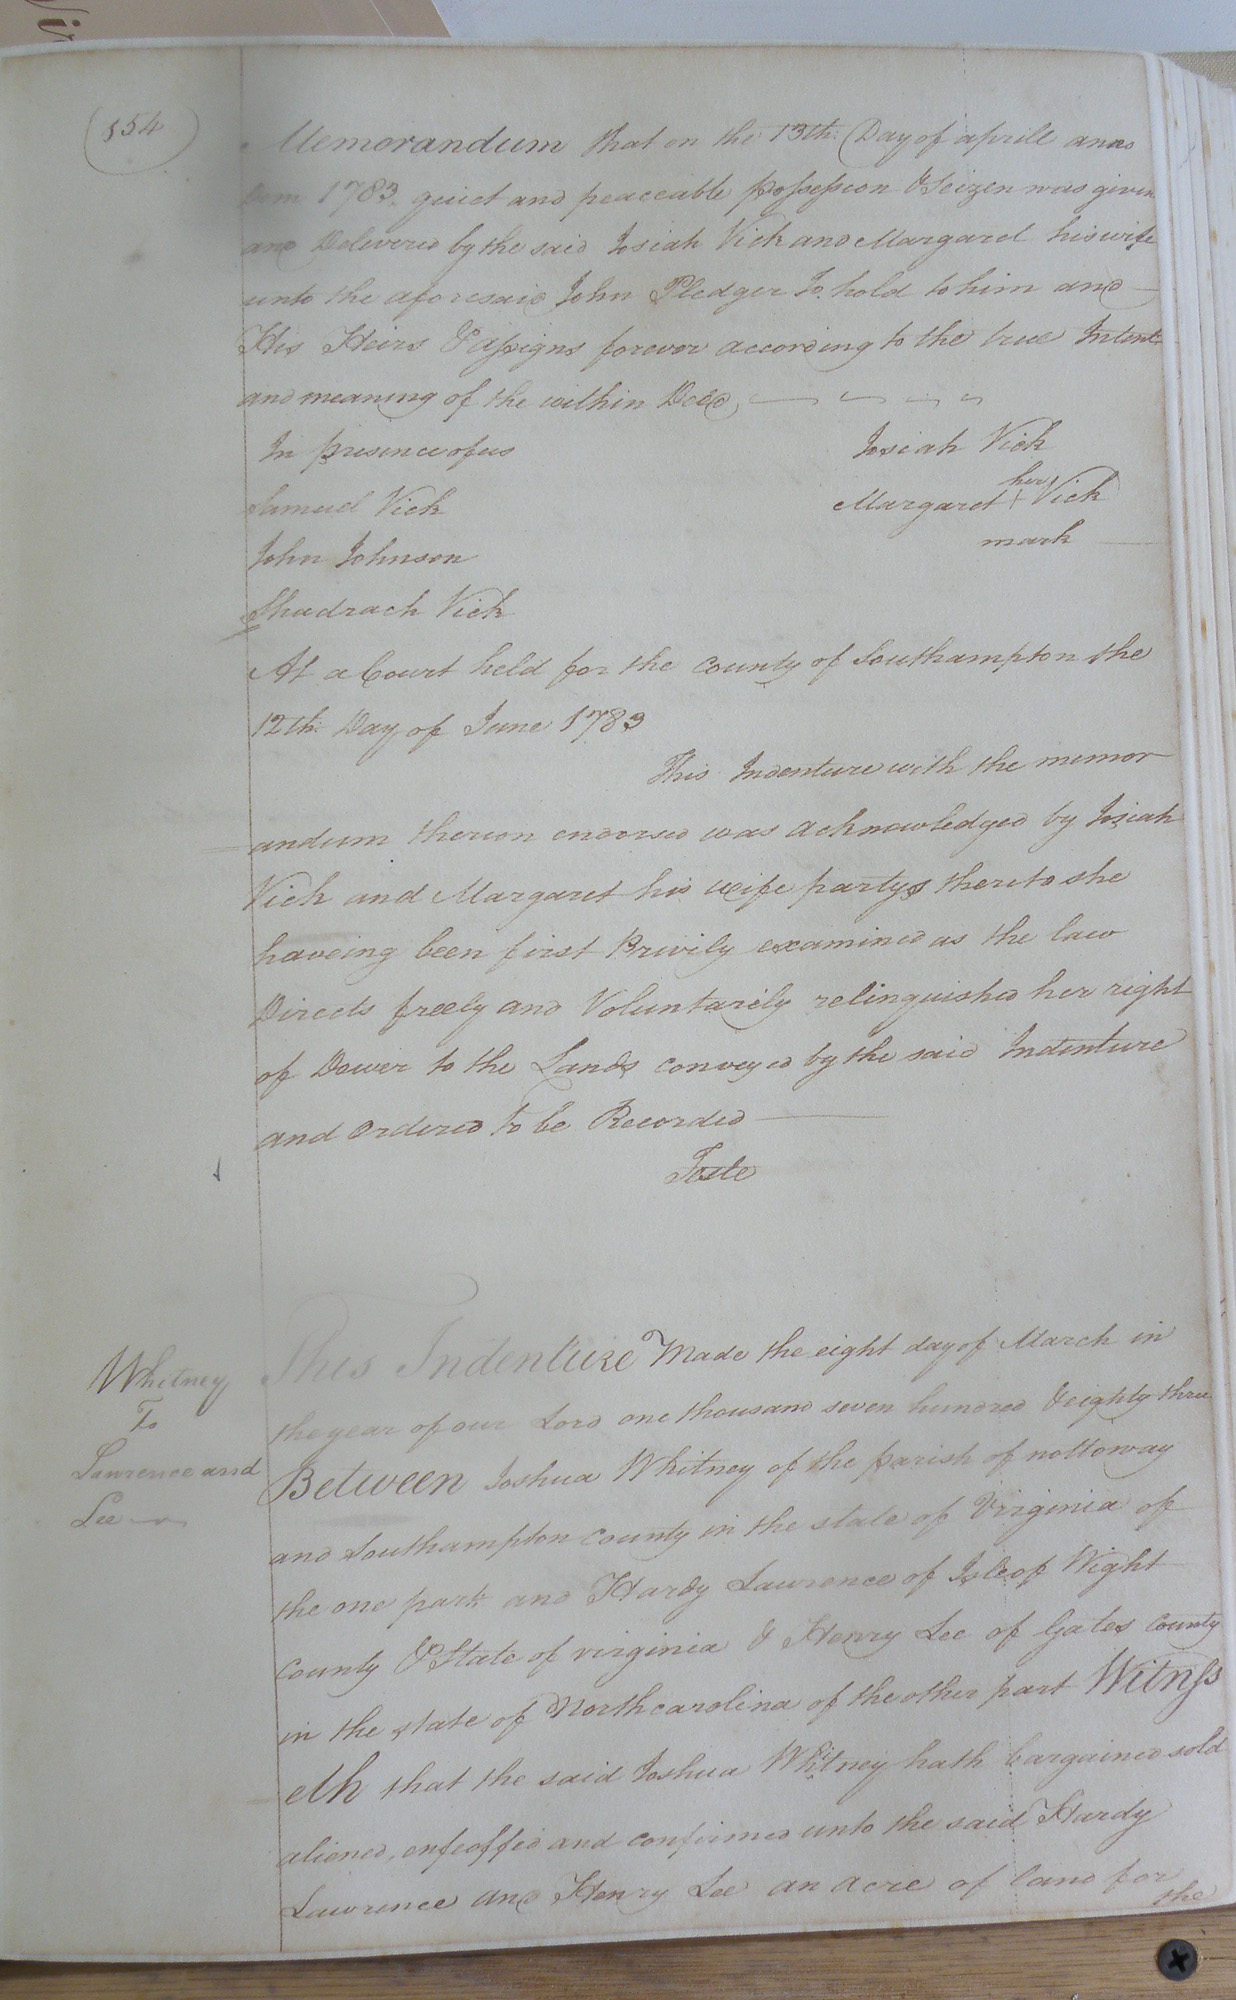 154
Memorandum that on the 13th: Day of aprill anno
Dom 1783. quiet and peaceable possession & Seizen was given
and Delivered by the said Josiah Vick and Margaret his wife
unto the aforesaid John Pledger To hold to him and
His Heirs & assigns forever according to the true Intent
and meaning of the within Deed
In presence of us
Josiah Vick
Samuel Vick
her
Margaret + Vick
mark
John Johnson
Shadrach Vick
At a Court held for the county of Southampton the
12th: Day of June 1783
This Indenture with the memor
andum thereon endorsed was acknowledged by Josiah
Vick and Margaret his wife partys thereto she
haveing been first Privily examined as the law
Directs freely and Voluntarily relinquished her right
of Dower to the Lands conveyed by the said Indenture
and ordered to be Recorded
Teste
Whitney
To
Lawrence and
Lee
This Indenture Made the eight day of March in
the year of our Lord one thousand seven hundred & eighty three
Between Joshua Whitney of the parish of nottoway
and Southampton county in the state of Virginia of
the one part and Hardy Lawrence of Isle of Wight
county & State of virginia & Henry Lee of Gates county
in the state of North carolina of the other part Witness
eth that the said Joshua Whitney hath bargained sold
aliened, enfeoffed and confirmed unto the said Hardy
Lawrence and Henry Lee an acre of land for
the